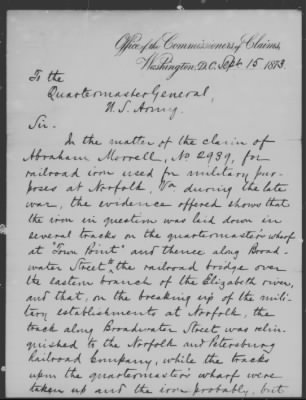 Office of the Commissioners of Claims,
Washington, D.C. Sept 15 1873.
To the
Quartermaster General,
U.S. Army.
Sir.
In the matter of the claim of
Abraham Morrell, No 2939, for
railroad iron used for military pur-
poses at Norfolk, Va during the late
war, the evidence offered shows that
the iron in question was laid down in
several tracks on the quartermaster's wharf
at "Town Point" and thence along Broad-
water Street the railroad bridge over
the eastern branch of the Elizabeth river,
and that, on the breaking up of the mili-
tary establishments at Norfolk, the
track along Broadwater Street was relin-
quished to the Norfolk and Petersburg
Railroad Company, while the tracks
upon the quartermaster's wharf were
taken up and the iron probably, but